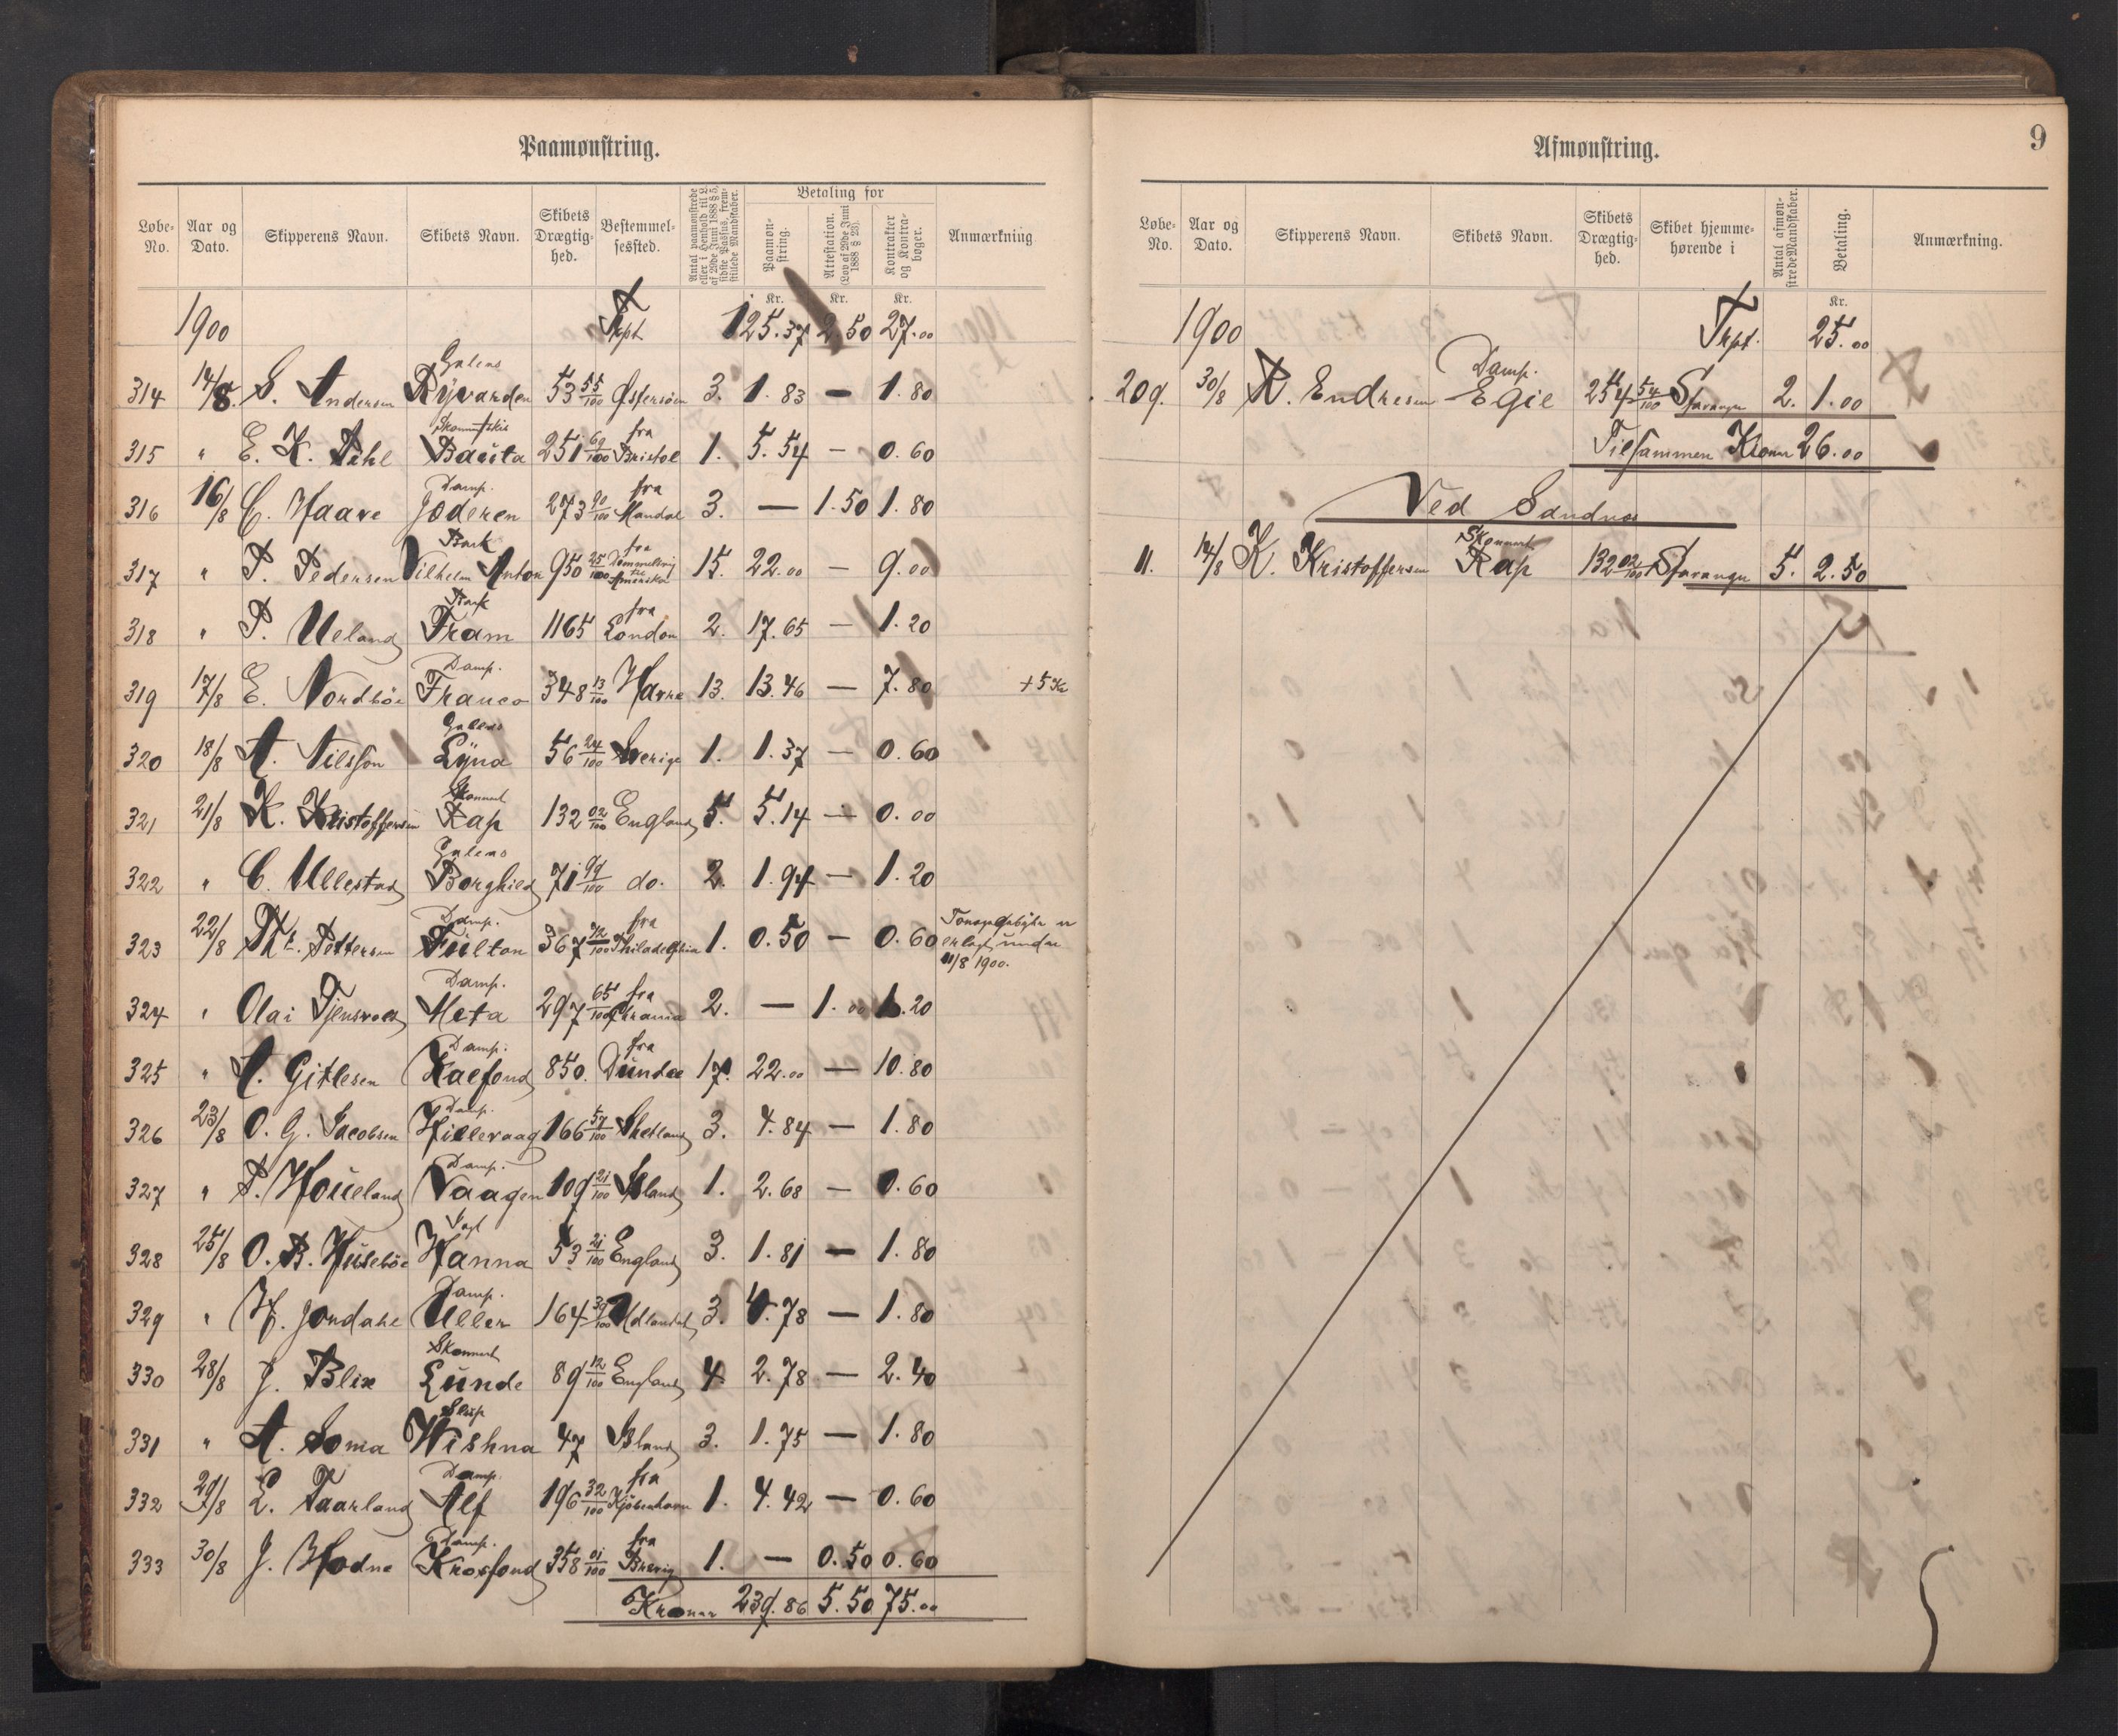 Paamønstring.
Løbe-No. Aar og Dato. Skipperens Navn. Skibets Navn. Skibets Drægtig-hed. Bestemmel-sessted. Antal paamønstrede eller i Henhold til L. af 29de Juni 1888 § 5, sidste Passus, frem-stillede Mandskaber. Betaling for Paamøn-string. Attestation. (Lov af 29de Juni 1888 § 23). Kontrakter og Kontra-bøger. Anmærkning
Kr. Kr. Kr.
1900 Trpt 125.37 2.50 27.00
314 14/8 S. Andersen Galeas Ryvarden 53 55/100 Østersöen 3. 1.83 — 1.80
315 " E. K. Dahl Bauta 251 69/100 fra Bristol 1. 5.54 — 0.60
316 16/8 C. Haave Damp. Jæderen 273 90/100 fra Mandal 3. — 1.50 1.80
317 " P. Pedersen Bark Vilhelm Anton 950 25/100 fra til Amerika 15. 22.00 — 9.00
318 " P. Ueland Bark Fram 1165 fra London 2. 17.65 — 1.20
319 17/8 E. Nordböe Damp. Franco 348 13/100 Havre 13. 13.46 — 7.80 + 5 Kr
320 18/8 A. Nilsson Galeas Lyna 56 24/100 Sverige 1. 1.37 — 0.60
321 21/8 K. Kristoffersen Skonnert Rap 132 02/100 England 5. 5.14 — 0.00
322 " C. Ullestad Galeas Borghild 71 99/100 do. 2. 1.94 — 1.20
323 22/8 Pettersen Damp. Fulton 367 72/100 fra Philadelphia 1. 0.50 — 0.60 Tonagegebyhr er erlagt under 11/8 1900.
324 " Olai Tjensvold Damp. Meta 297 65/100 fra Chrania 2. — 1.00 1.20
325 " A. Gitlesen Damp. Kalfond 850. fra Dundee 17. 22.00 — 10.80
326 23/8 O. G. Jacobsen Damp. Hillevaag 166 57/100 Shetland 3. 4.84 — 1.80
327 " P. Houeland Damp. Vaagen 109 21/100 Island 1. 2.68 — 0.60
328 25/8 O. B. Huseböe Jagt Hanna 53 21/100 England 3. 1.81 — 1.80
329 " H. Jondahl Damp. Uller 164 39/100 Udlandet 3. 4.78 — 1.80
330 28/8 J. Blix Skonnert Lunde 89 12/100 England 4 2.78 — 2.40
331 " A. Soma Slup Wishna 47 Island 3. 1.75 — 1.80
332 29/8 L. Taarland Damp. Alf 196 32/100 fra Kjöbenhavn 1. 4.42 — 0.60
333 30/8 J. Hodne Damp. Krosfond 358 01/100 fra Brevig 1. — 0.50 0.60
Kroner 239.86 5.50 75.00
Afmønstring.
9
Løbe-No. Aar og Dato. Skipperens Navn. Skibets Navn. Skibets Drægtig-hed. Skibet hjemme-hørende i Antal afmøn-strede Mandskaber. Betaling. Anmærkning.
Kr.
1900 Trpt. 25.00
209. 30/8 R. Endresen Damp. Egil 254 54/100 Stavanger 2. 1.00
Tilsammen Kroner 26.00
Ved Sandnes
11. 14/8 K. Kristoffersen Skonnert Rap 132 02/100 Stavanger 5. 2.50